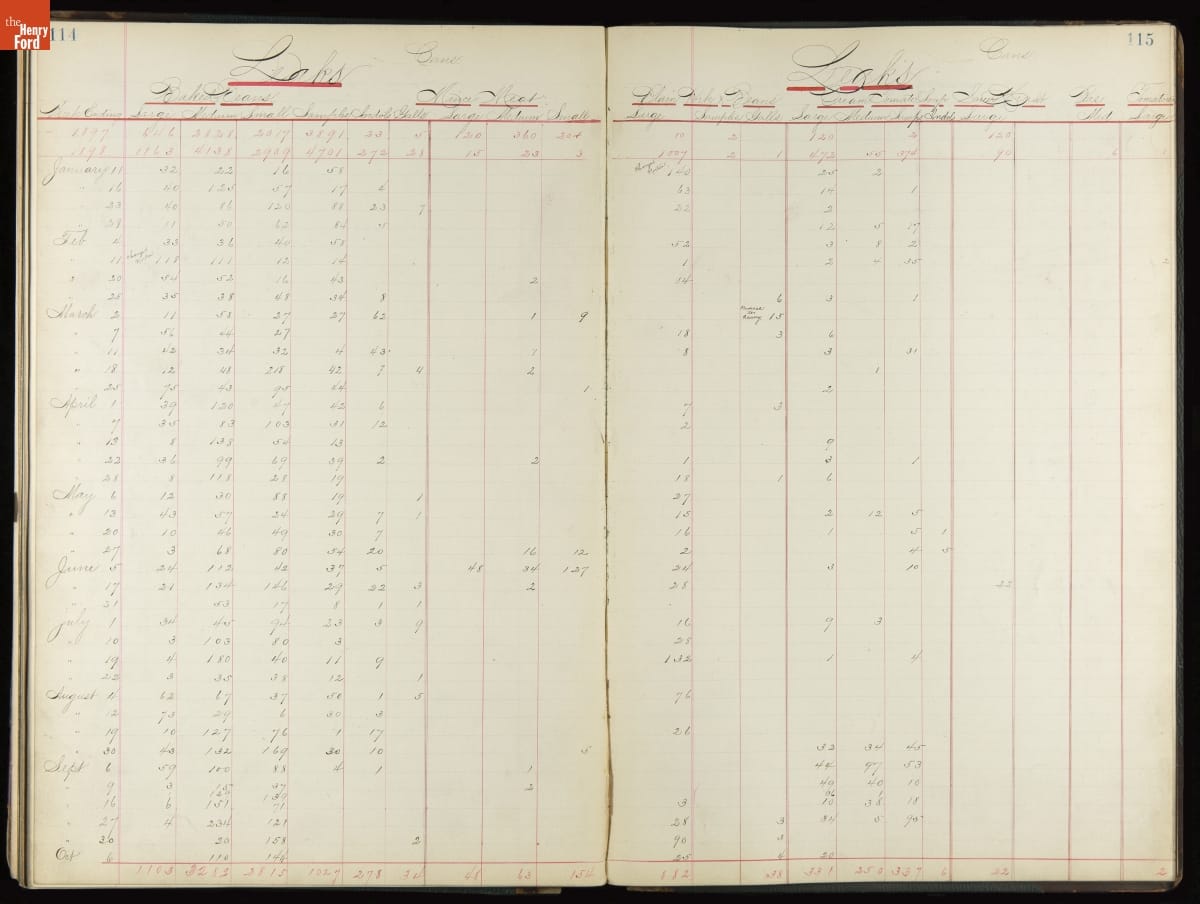 the
Henry
Ford
114
Leaks Cans
Baked Beans Mince Meat
Week Ending Large Medium Small Samples Individ Galls Large Medium Small
1897 646 2828 2017 3891 33 5 120 360 204
1898 1163 4138 2909 4701 272 28 15 23 3
January 11 32 22 16 58
" 16 40 125 57 17 4
" 23 40 86 120 88 23 7
" 28 11 50 62 84 5
Feb 4 33 36 40 58
" 11 118 111 12 14
" 20 84 52 16 43 2
" 25 35 38 48 34 8
March 2 11 58 27 27 62 1 9
" 7 56 44 27
" 11 42 34 32 4 43 7
" 18 12 48 218 42 7 4 2
" 25 75 43 95 44 1
April 1 39 120 47 42 6
" 7 35 83 103 31 12
" 13 8 138 54 13
" 22 36 99 69 39 2 2
" 28 8 118 28 19
May 6 12 30 88 19 1
" 13 43 57 24 29 7 1
" 20 10 46 49 30 7
" 27 3 68 80 34 20 16 12
June 5 24 112 42 37 5 48 34 127
" 17 21 134 146 29 22 3 2
" 31 53 17 8 1 1
July 1 34 45 94 23 3 9
" 10 3 103 80 3
" 19 4 180 40 11 9
" 22 3 35 38 12 1
August 4 62 67 37 50 1 5
" 12 73 29 6 30 3
" 19 10 127 76 1 17
" 30 43 132 169 30 10 5
Sept 6 59 100 88 4 1 1
" 9 3 37 2
" 16 6 151 71
" 27 4 234 121
" 30 20 158 2
Oct 6 110 146
1103 3282 2815 1027 278 34 48 63 154
115
Leaks Cans
Plain Pork & Beans Cream Tomato Soup Key Tomatoes
Large Samples Galls Large Medium Large Med Large
10 2 120 2 120
1007 2 1 472 55 374 90 6
140 25 2
63 14 1
22 2
12 5 17
52 3 8 2
1 2 4 35 2
14
6 3 1
15
18 3 6
8 3 31
1
2
7 3
2
9
1 3 1
18 1 6
27
15 2 12 5
16 1 5 1
2 4 5
24 3 10
28 22
16 9 3
28
132 1 4
76
26
32 34 45
44 97 53
49 40 10
3 10 38 18
28 3 34 5 95
90 3
25 4 20
682 38 331 250 337 6 22 2